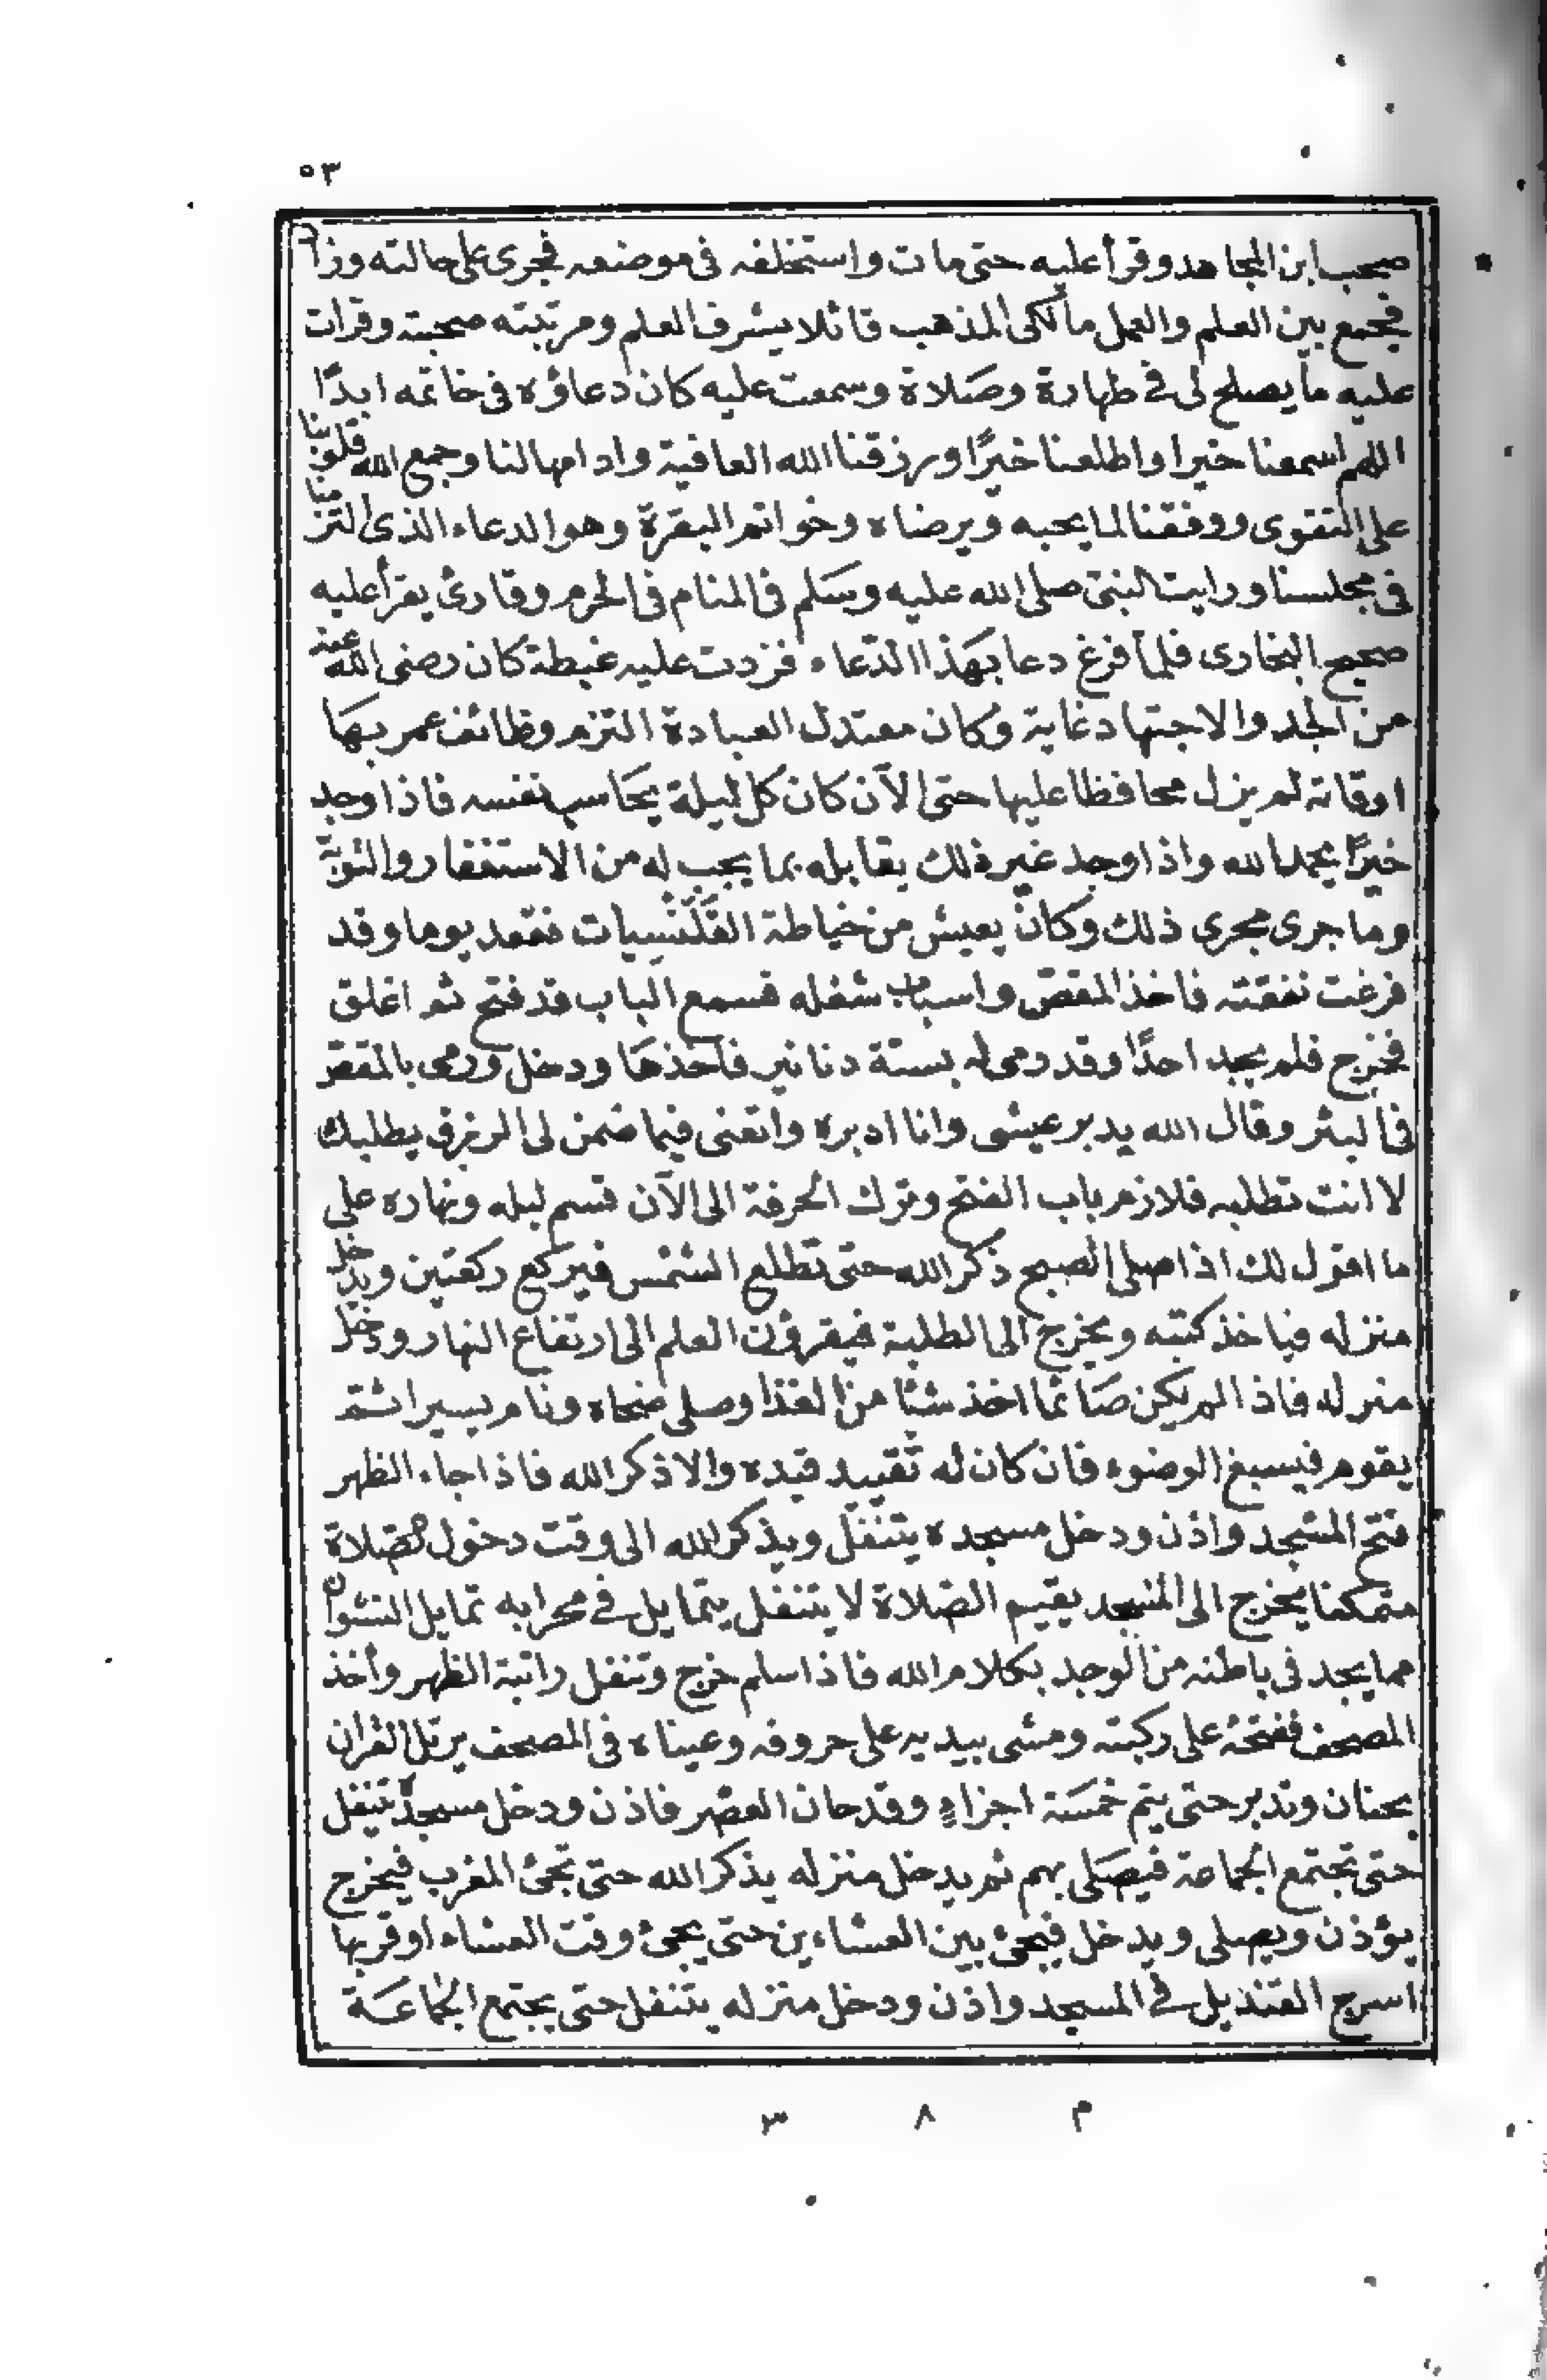 ٥٣
صحب ابن المجاهد وقرأ عليه حتى مات واستخلفه فى موضعه فجرى على حالته وزاد
فجمع بين العلم والعمل مالكى المذهب قائلا بشرف العلم ومرتبته صحبته وقرات
عليه ما يصلح لى فى طهارة وصلاة وسمعت عليه كان دعاؤه فى خاتمه ابدًا
اللهم اسمعنا خيرا واطلعنا خيرًا ورزقنا الله العافية وادامها لنا وجمع الله قلوبنا
على التقوى ووفقنا لما يحبه ويرضاه وخواتم البقرة وهو الدعاء الذى التزمنا
فى مجلسنا ورايت النبىّ صلى الله عليه وسَلم فى المنام فى الحرم وقارئ يقرأ عليه
صحيح البخارى فلما فرغ دعا بهَذا الدّعاء فزدت عليه غبطة كان رضى الله عنه
من الجد والاجتهاد غاية وكان معتدل العبادة التزم وظائف عمر بهَا
اوقاته لم يزل محافظا عليها حتى الآن كان كل ليلة يحَاسب نفسه فاذا وجد
خيرًا يحمد الله واذا وجد غير ذلك يقابله بما يجب له من الاستغفار والتوبة
وما جرى مجرى ذلك وكان يعيش من خياطة القَلَنْسِيات فقعد يوما وقد
فرغت نفقته فاخذ المقصّ واسباب شغله فسمع الباب قد فتح ثم اغلق
فخرج فلم يجد احدًا وقد رمى له بستة دنانير فاخذهَا ودخل ورمى بالمقصّ
فى البئر وقال الله يدبر عيشى وانا ادبره واتعنى فيما ضمن لى الرزق يطلبك
لا انت تطلبه فلازم باب الفتح وترك الحرفة الى الآن قسم ليله ونهاره على
ما اقول لك اذا صلى الصبح ذكر الله حتى تطلع الشمس فيركع ركعتين ويدخل
منزله فياخذ كتبه ويخرج الى الطلبة فيقرؤن العلم الى ارتفاع النهار ودخل
منزله فاذا لم يكن صَائما اخذ شيًا من الغذا وصلى ضحاه ونام يسيرا ثم
يقوم فيسبغ الوضوء فان كان له تقييد قيده والا ذكر الله فاذا جاء الظهر
فتح المسْجد واذن ودخل مسجده يتنفّل ويذكر الله الى وقت دخول الصّلاة
متمكنا يخرج الى المسجد يقيم الصّلاة لا يتنفل يتمايل فى محرابه تمايل النشوان
مما يجد فى باطنه من الوجد بكلام الله فاذا سلم خرج وتنفل راتبة الظهر وأخذ
المصحف ففتحه على ركبته ومشى بيديه على حروفه وعيناه فى المصحف يرتل القران
بحنان وتدبر حتى يتم خمسَة اجزاءٍ وقد حان العصْر فاذن ودخل مسجده تنفل
حتى تجتمع الجماعة فيصَلى بهم ثم يدخل منزله يذكر الله حتى تجئ المغرب فيخرج
يؤذن ويصلى ويدخل فيحيى بين العشاءين حتى يجئ وقت العشاء او قربها
اسرج القنديل فى المسجد واذن ودخل منزله يتنفل حتى يجتمع الجماعَة
م ٨ ٣